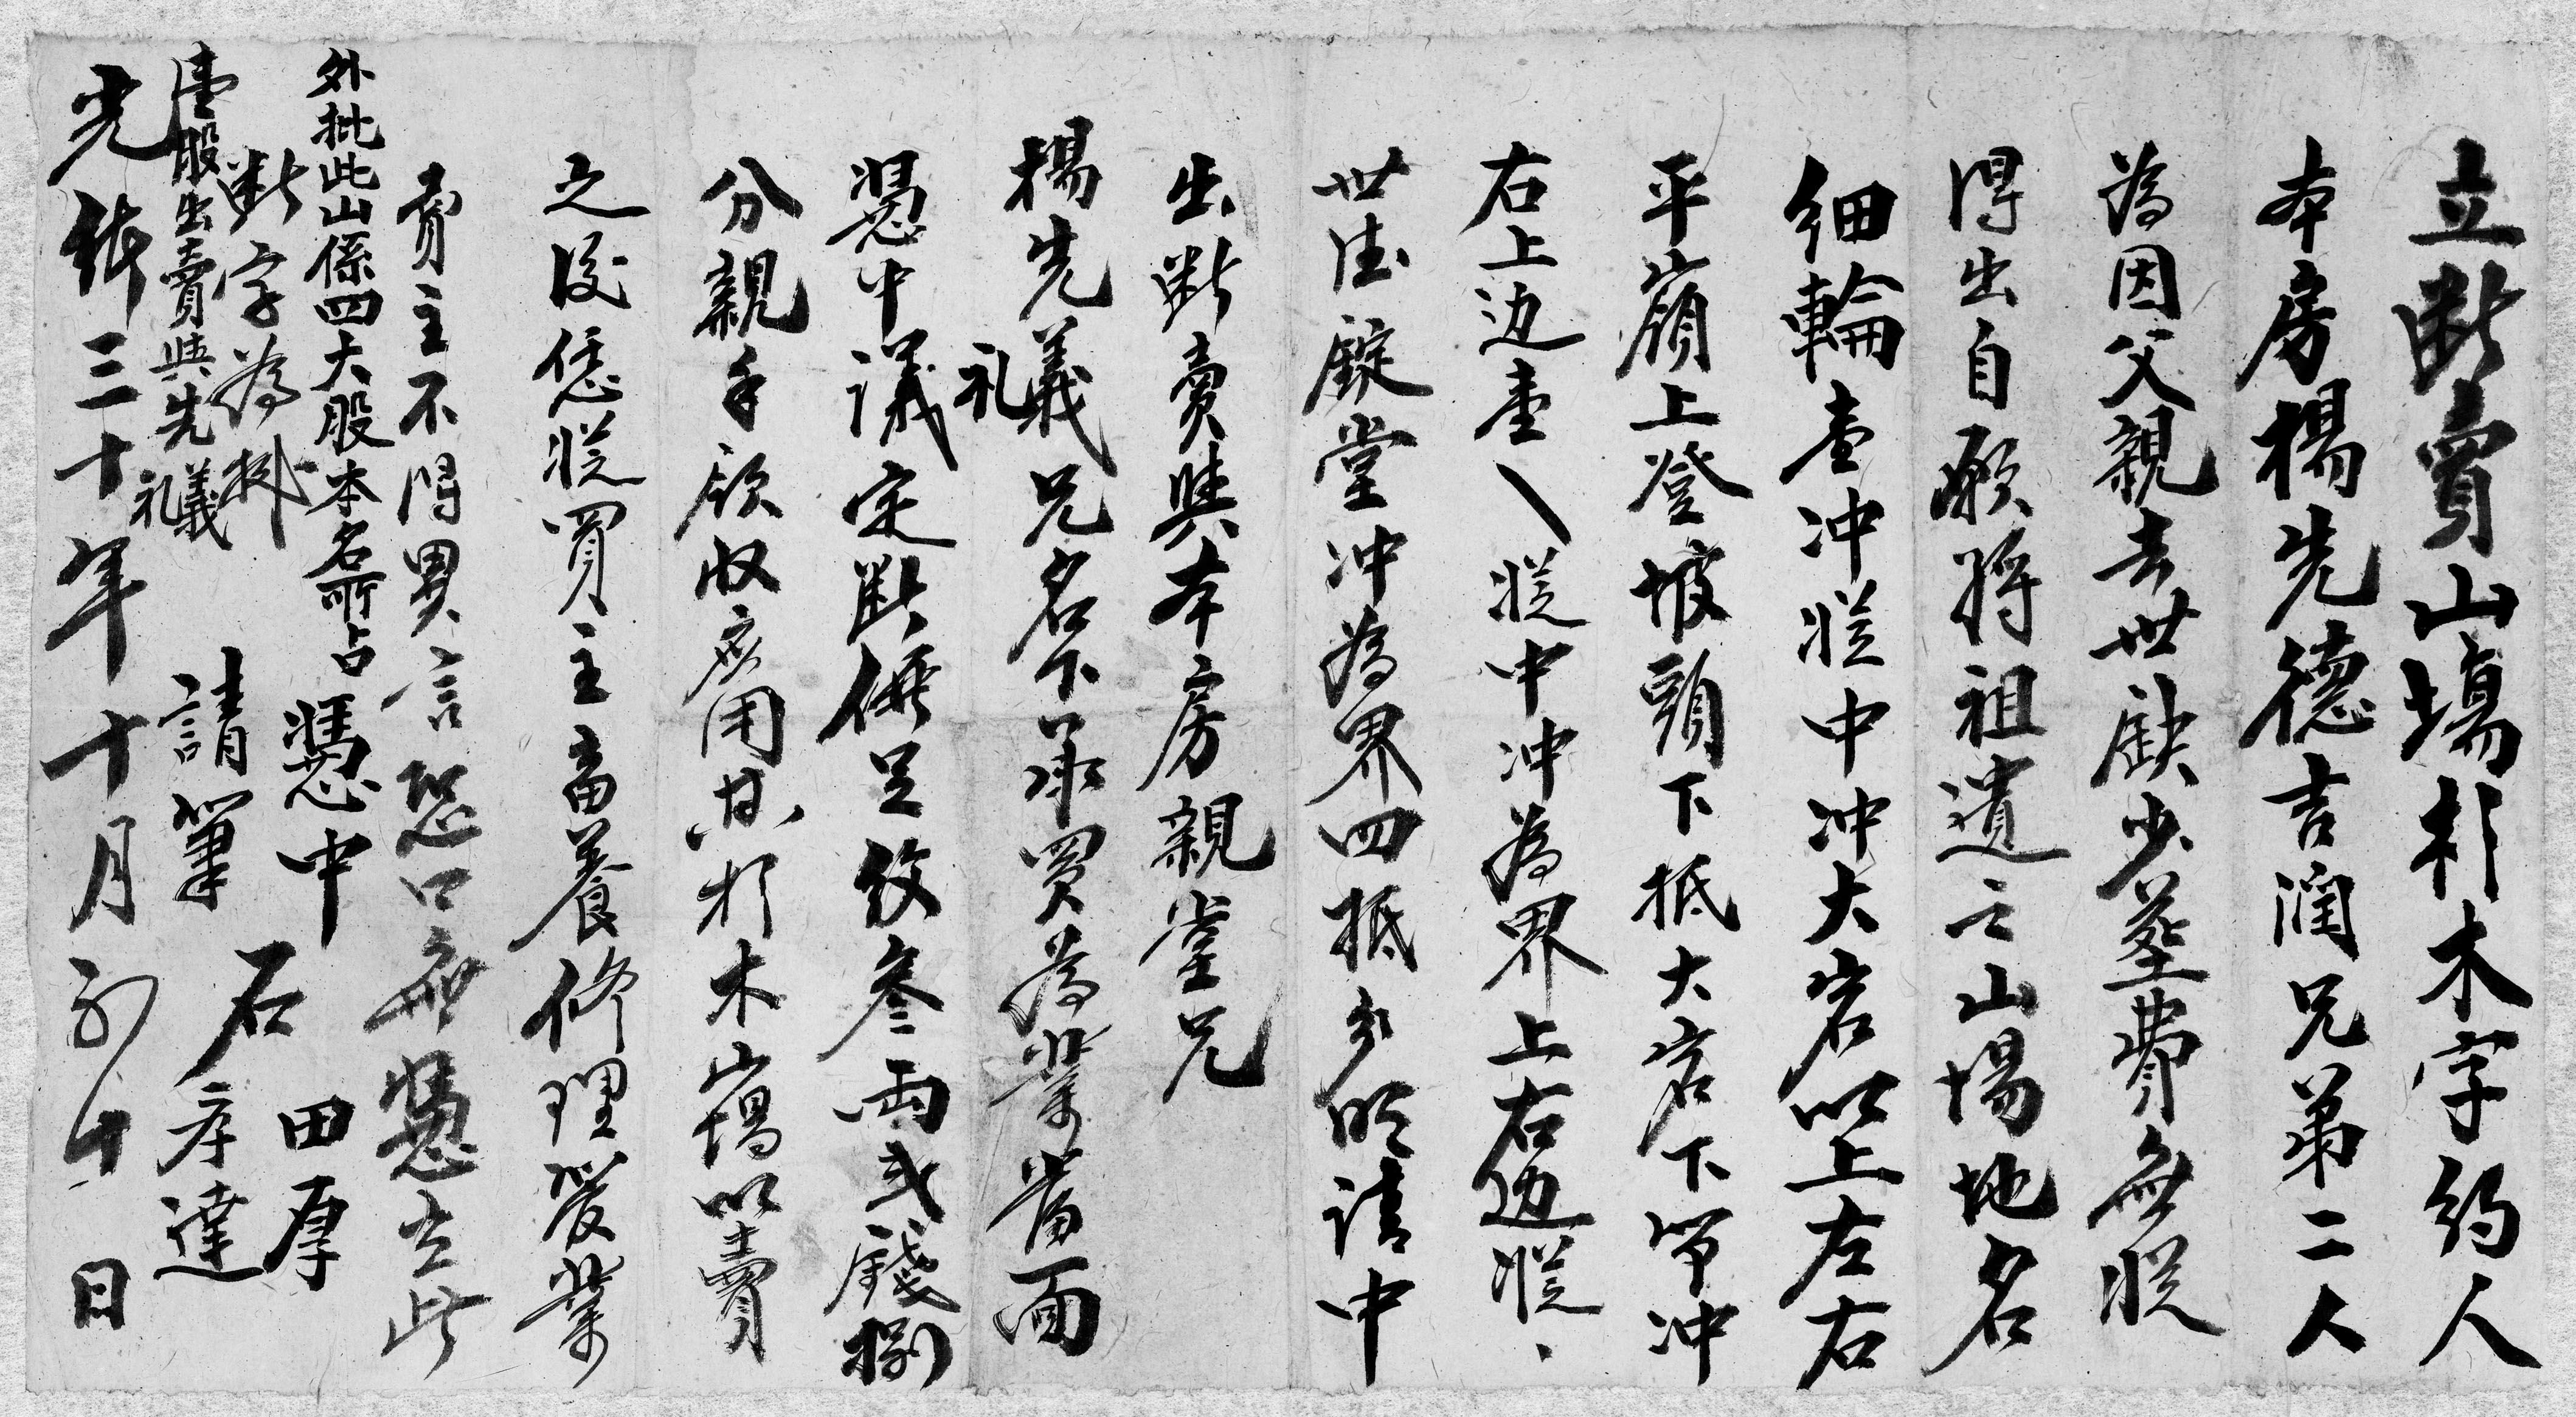 立斷賣山塲杉木字約人
本房楊先德吉潤兄弟二人
為因父親去世缺少塟費無從
得出自愿将祖遺之山場地名
細輪壹冲從中冲大岩以上左右
平嶺上登坡頭下抵大岩下冲
右上边壹從中冲為界上右边從
世德錠堂冲為界四抵分明請中
出斷賣與本房親堂兄
楊先義礼兄名下承買為業当面
憑中議定斷價足紋叁両弍錢捌
分親手領收應用其杉木山塲以賣
之後恁從買主畜養修理管業
賣主不得異言恐口無憑立此
外批此山係四大股本名所占
斷字為拠
壹股出賣與先義礼
憑中 田厚
請筆 石彦達
光緒三十年十月初十日